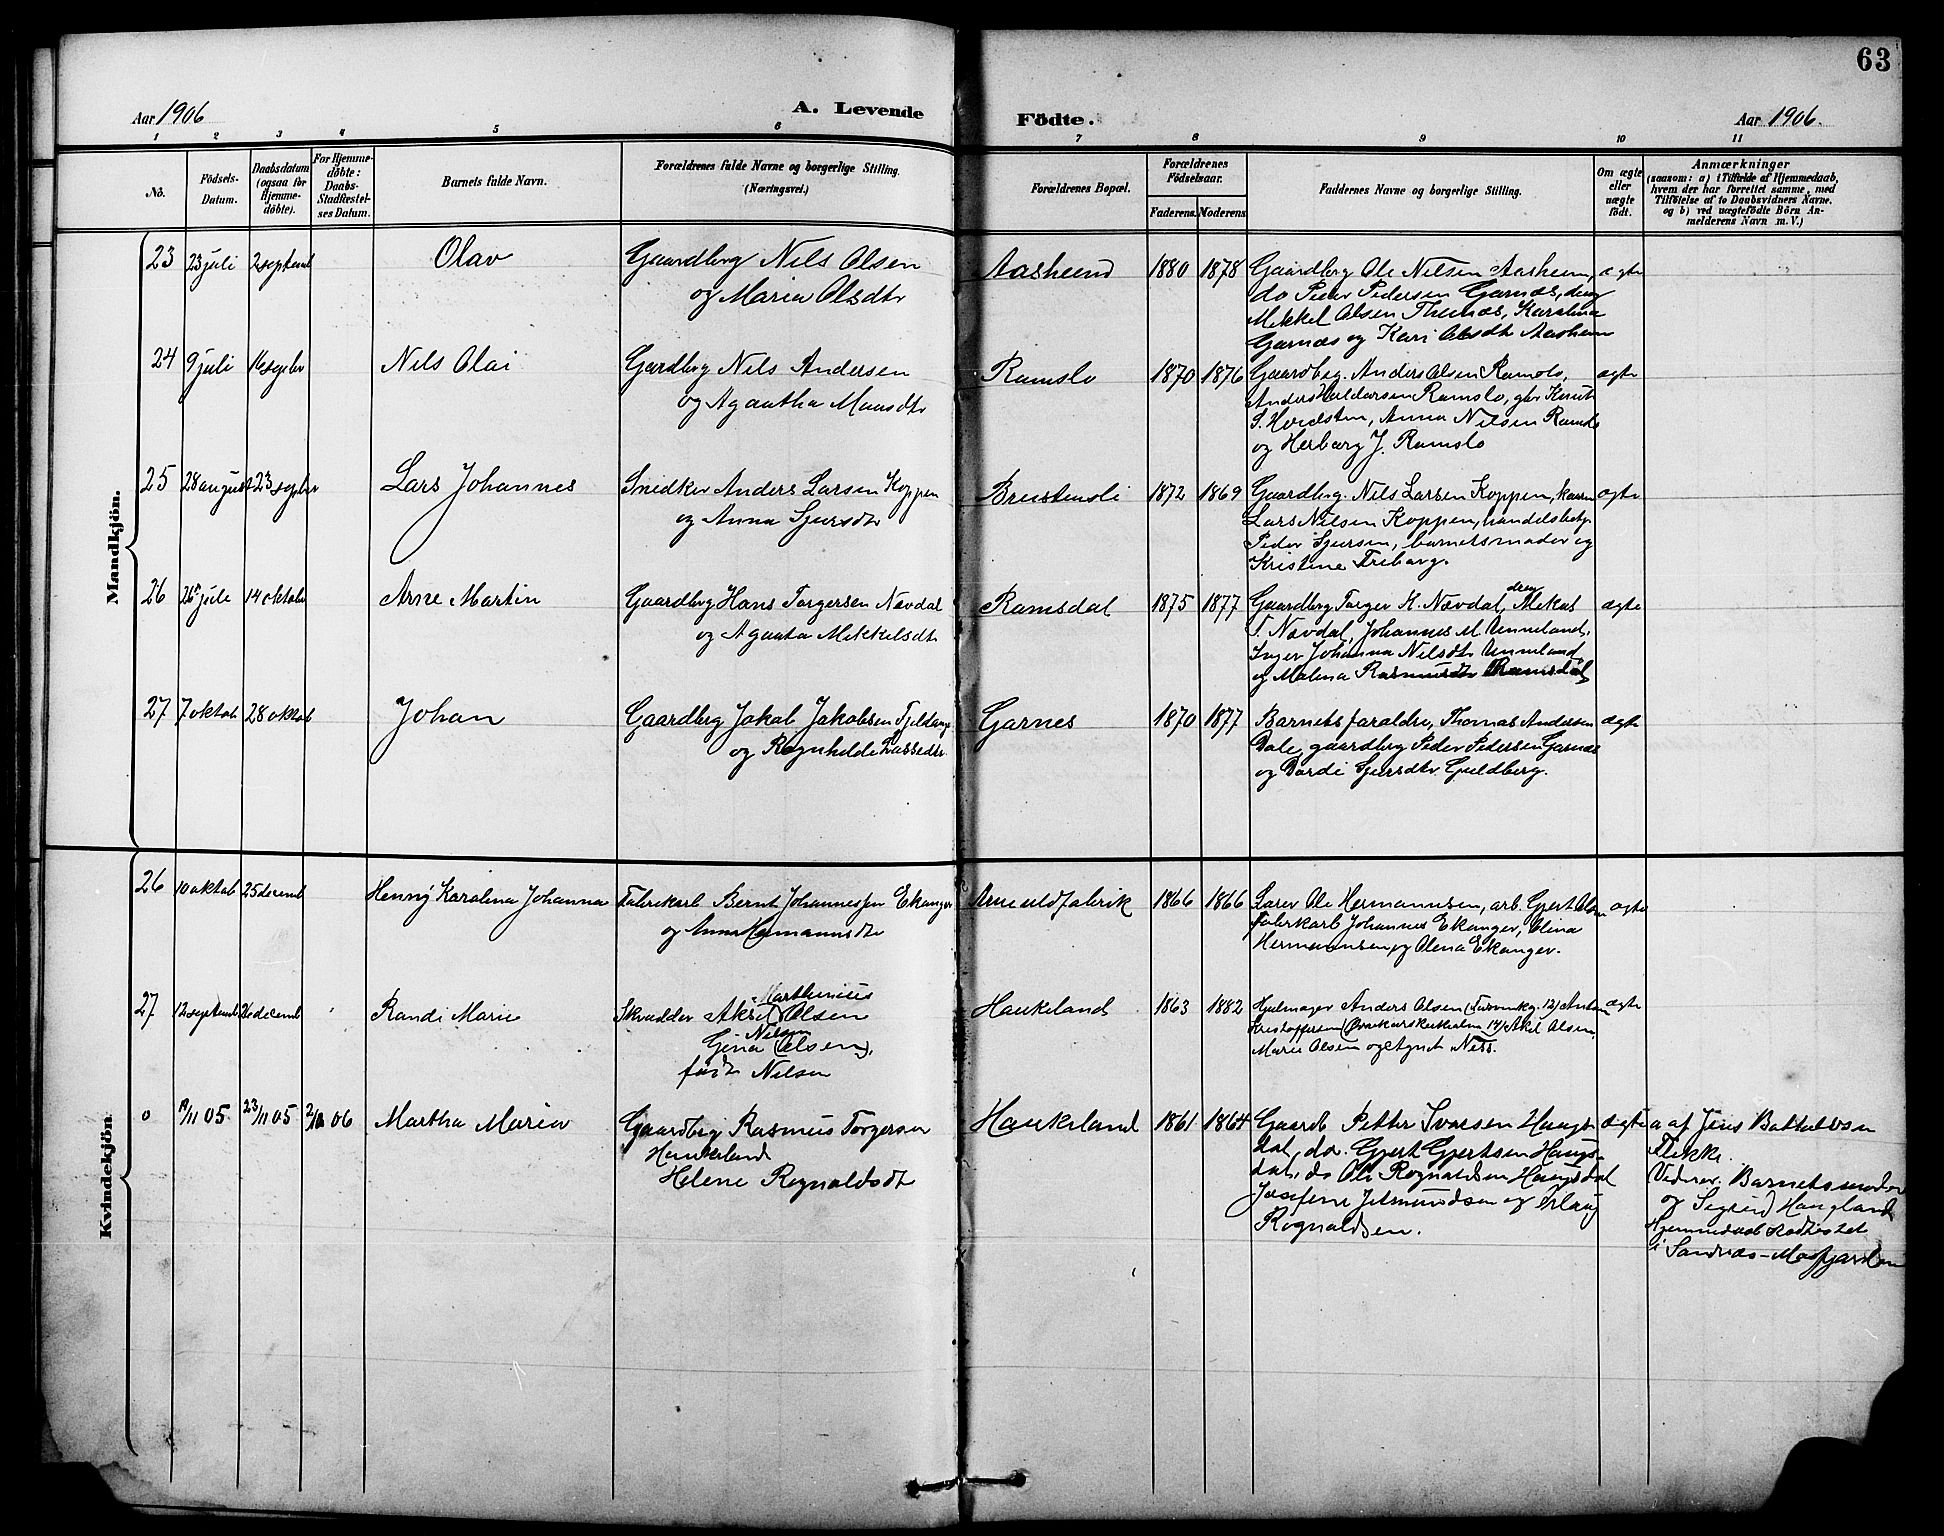 63
Aar 1906
A. Levende
Födte.
Aar 1906.
1 2 3 4 5 6 7 8 9 10 11
No.
Födsels-
Datum.
Daabsdatum
(ogsaa for
Hjemme-
döbte).
For Hjemme-
döbte:
Daabs-
Stadfestel-
ses Datum.
Barnets fulde Navn.
Forældrenes fulde Navne og borgerlige Stilling.
(Næringsvei.)
Forældrenes Bopæl.
Forældrenes
Födselsaar.
Faderens. Moderens.
Faddernes Navne og borgerlige Stilling.
Om ægte
eller
uægte
født.
Anmærkninger
(saasom: a) i Tilfælde af Hjemmedaab,
hvem der har forrettet samme, med
Tilföielse af to Daabsvidners Navne.
og b) ved uægtefödte Börn An-
melderens Navn m.V.)
Mandkjön.
23 23 juli 2 septemb Olav Gaardbrg Nils Olsen
og Maria Olsdtr
Aasheim 1880 1878 Gaardbrg Ole Nilsen Aasheim, ægte
do Peder Pedersen Garnæs, dreng
Mikkel Olsen Thunæs, Karolina
Garnæs og Kari Olsdtr Aasheim
24 9 juli 16 septbr Nils Olai Gardbrg Nils Andersen
og Agaatha Monsdtr
Ramslo 1870 1876 Gaardbrg. Anders Olsen Ramslo, ægte
Anders Haldorsen Ramslo, gbr Knut
S. Hvidsten, Anna Nilsen Ramslo
og Herborg J. Ramslo
25 28 august 23 septbr Lars Johannes Snedker Anders Larsen Koppen
og Anna Sjursdtr
Breistensli 1872 1869 Gaardbrg. Nils Larsen Koppen, ægte
Lars Nilsen Koppen, handelsbetj.
Peder Sjursen, barnetsmoder og
Kristine Friberg.
26 26 juli 14 oktobr Arne Martin Gaardbrg Hans Torgersen Nævdal
og Agaata Mikkelsdtr
Ramsdal 1875 1877 Gaardbrg Torger K. Nævdal, dreng Mikal ægte
T. Nævdal, Johannes M. Unneland,
Inger Johanna Nilsdtr Unneland
og Malena Rasmusdtr Ramsdal
27 7 oktob 28 oktob Johan Gaardbrg Jakob Jakobsen
og Ragnhilde Lassedtr
Garnes 1870 1877 Barnets foraldre, Thomas Andersen ægte
Dale, gaardbrg Peder Pedersen Garnæs
og Dordi Sjursdtr Guldberg.
Kvindekjön.
26 10 oktob 25 decemb Henny Karolina Johanna Fabrikarb Bernt Johannessen Ekanger
og Anna Hermannsdtr
Arne uldfabrik 1866 1866 Ole Hermannsen, arb. Gjert Olsen ægte
Fabrkarb Johannes Ekanger, Elina
Hermannsen, og Olena Ekanger.
27 12 septemb 26 decemb Randi Marie Skrædder Aksel Marthinius Olsen
Gina Nilsen (Olsen),
født Nilsen
Haukeland 1863 1882 Hjulmager Anders Olsen Anton ægte
Kristoffersen Aksel Olsen,
Marie Olsen og Agnet Ness.
0 19/11 05 23/11 05 06 Martha Maria Gaardbrg Rasmus Torgersen
Haukeland
Helene Rognaldsdtr
Haukeland 1861 1864 Gaardb Petter Ivarsen Haugs- ægte
dal, do. Gjert Gjertsen Haugs-
dal, do Ole Rognaldsen Haugsdal
Josefine Jetmundsen og Erlaug
Rognaldsen.
a af Jens Battolvsen
Flekke.
Vidner. Barnets moder
og Sigrid Haugland
Hjemmedaab stadfestet
i Sandnæs-Masfjorden